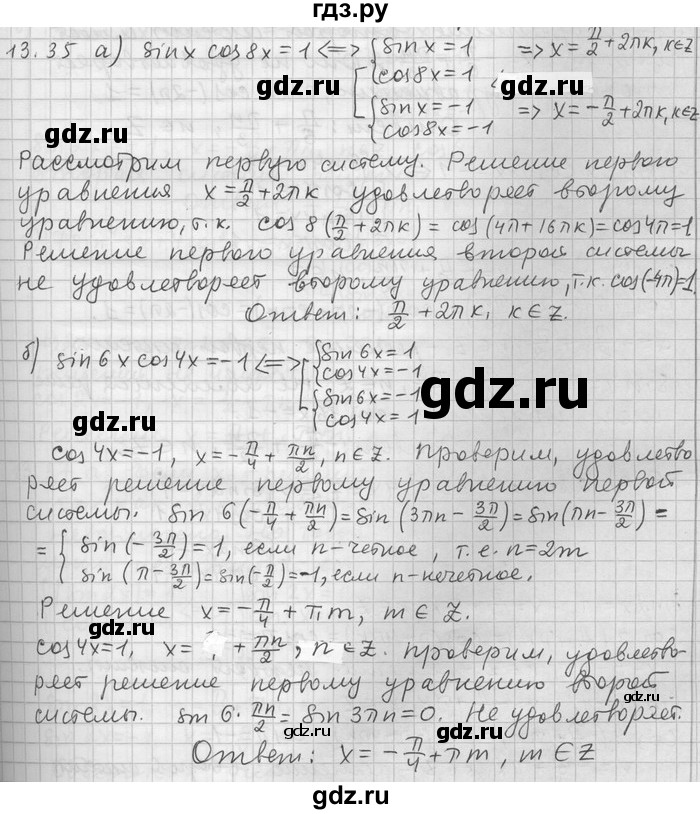 гдз.ру
13.35 а) sinx cos8x=1 <=> [ { sinx=1 => x=π/2+2πк, к∈Z
cos8x=1
{ sinx=-1 => x=-π/2+2πк, к∈Z
cos8x=-1
gdz.ru gdz.ru
Рассмотрим первую систему. Решение первого
уравнения x=π/2+2πк удовлетворяет второму
gdz.ru
уравнению, т.к. cos 8(π/2+2πк)=cos(4π+16πк)=cos4π=1
Решение первого уравнения второй системы
не удовлетворяет второму уравнению, т.к. cos(-4π)=1.
gdz.ru gdz.ru
Ответ: π/2+2πк, к∈Z.
б) sin6x cos4x=-1 <=> [ { sin6x=1
cos4x=-1
{ sin6x=-1
cos4x=1
gdz.ru
gdz.ru
cos4x=-1, x=-π/4+πn/2, n∈Z. Проверим, удовлетво
ряет решение первому уравнению первой
gdz.ru
системы. sin 6(-π/4+πn/2)=sin(3πn-3π/2)=sin(πn-3π/2)=
gdz.ru
= { sin(-3π/2)=1, если n-четное, т.е. n=2m
sin(π-3π/2)=sin(-π/2)=-1, если n-нечетное.
Решение x=-π/4+πm, m∈Z.
gdz.ru
gdz.ru
cos4x=1, x= +πn/2, n∈Z. Проверим, удовлетво-
ряет решение первому уравнению второй
gdz.ru
системы. sin 6·πn/2=sin3πn=0. Не удовлетворяет.
gdz.ru
Ответ: x=-π/4+πm, m∈Z
gdz.ru